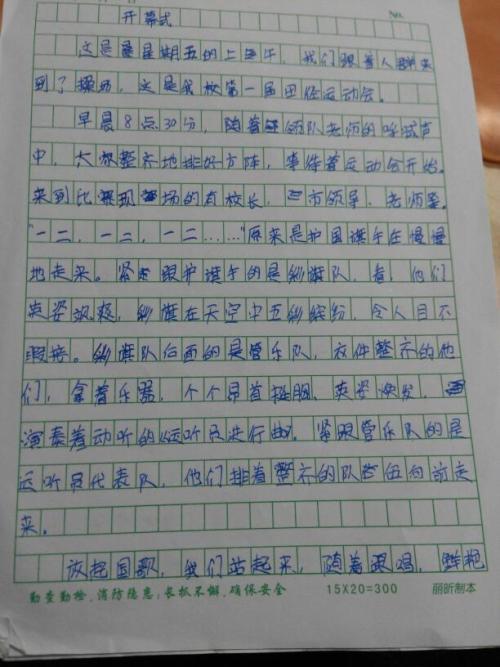 No.
开幕式
这是星期五的上午，我们跟着人群来
到了操场，这是我校第一届田径运动会。
早晨8点30分，随着领队老师的呼喊声
中，大家整齐地排好方阵，等待着运动会开始。
来到比赛现场的有校长，市领导，老师等。
"一二，一二，一二……"原来是护国旗手在慢慢
地走来。紧跟护旗手的是彩旗队，看，他们
英姿飒爽，彩旗在天空中五彩缤纷，令人目不
暇接。彩旗队后面的是管乐队，衣件整齐的他
们，拿着乐器，个个昂首挺胸，英姿焕发，
演奏着动听的《运动员进行曲。紧跟管乐队的是
运动员代表队，他们排着整齐的队伍向前走
来。
放起国歌，我们站起来，随着跟唱，鲜艳
勤查勤检，消防隐患；长抓不懈，确保安全 15X20=300 丽昕制本